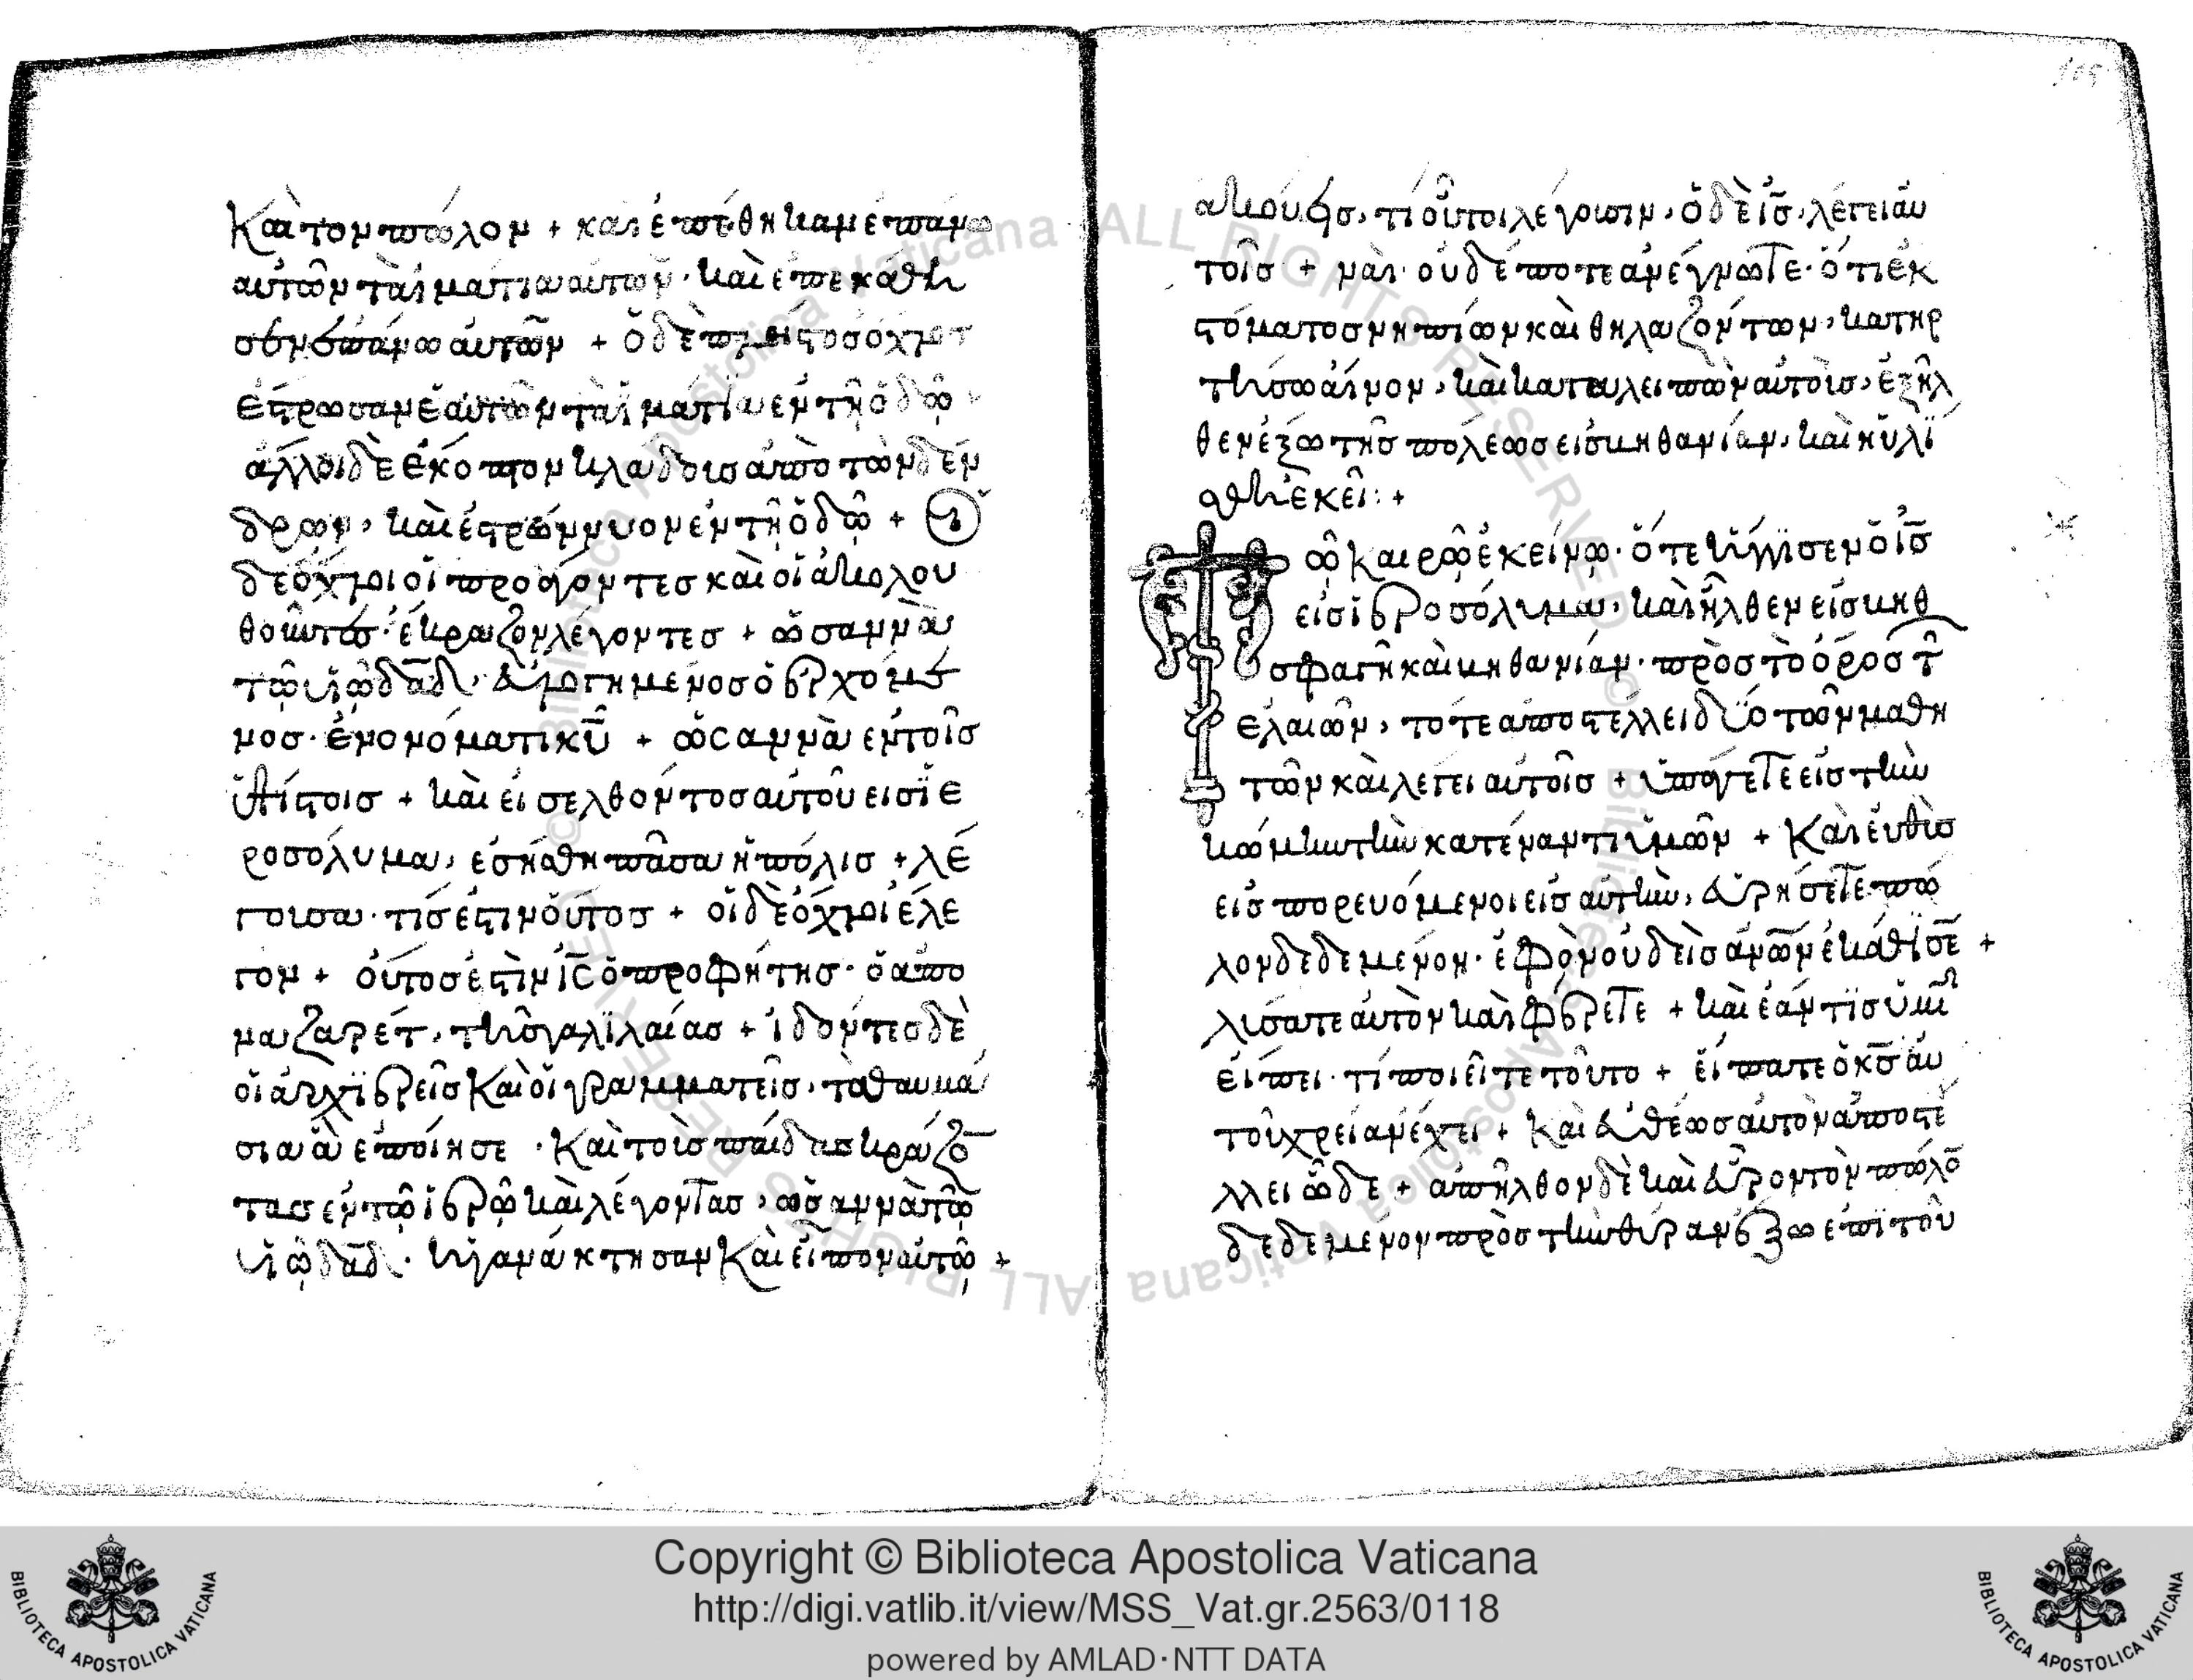 Καὶ τὸν πῶλον + καὶ ἐπέθηκαν ἐπάνω
αὐτῶν τὰ ἱμάτια αὐτῶν· καὶ ἐπεκάθη
σεν ἐπάνω αὐτῶν + ὁ δὲ πλεῖστος ὄχλος
ἔστρωσαν ἑαυτῶν τὰ ἱμάτια ἐν τῇ ὁδῷ·
ἄλλοι δὲ ἔκοπτον κλάδους ἀπὸ τῶν δέν
δρων, καὶ ἐστρώννυον ἐν τῇ ὁδῷ + οἱ
δὲ ὄχλοι οἱ προάγοντες καὶ οἱ ἀκολου
θοῦντες· ἔκραζον λέγοντες + ὡσαννὰ
τῷ υἱῷ δᾱδ· εὐλογημένος ὁ ἐρχόμε
νος· ἐν ὀνόματι κῡ + ὡσαννὰ ἐν τοῖς
ὑψίστοις + καὶ εἰσελθόντος αὐτοῦ εἰς ἱε
ροσόλυμα, ἐσήσθη πᾶσα ἡ πόλις + λέ
γουσα· τίς ἐστιν οὗτος + οἱ δὲ ὄχλοι ἔλε
γον + οὗτός ἐστὶν ῑς̄ ὁ προφήτης· ὁ ἀπὸ
ναζαρέτ, τῆς γαλιλαίας + ἰδόντες δὲ
οἱ ἀρχιερεῖς Καὶ οἱ γραμματεῖς, τὰ θαυμά
σια ἃ ἐποίησε · Καὶ τοὺς παῖδας κράζο̄
τας ἐν τῷ ἱερῷ καὶ λέγοντας, ὡσαννὰ τῷ
υἱῷ δᾱδ· ἠγανάκτησαν Καὶ εἶπον αὐτῷ +
ἀκούεις, τί οὗτοι λέγουσιν, ὁ δὲ ῑς̄, λέγει αὐ
τοῖς + ναὶ· οὐδέποτε ἀνέγνωτε· ὅτι ἐκ
στόματος νηπίων καὶ θηλαζόντων, κατηρ
τήσω αἶνον, καὶ καταλειπὼν αὐτοὺς, ἐξῆλ
θεν ἔξω τῆς πόλεως εἰς βηθανίαν, καὶ ηὐλί
σθη ἐκεῖ: +
Τῷ Καιρῷ ἐκείνῳ· ὅτε ἤγγισεν ὁ ῑς̄
εἰς ἱεροσόλυμα, καὶ ἦλθεν εἰς βηθ
σφαγὴ καὶ βηθανίαν· πρὸς τὸ ὄρος τῶ
ἐλαιῶν, τότε ἀποστέλλει δύο τῶν μαθη
τῶν καὶ λέγει αὐτοῖς + ὑπάγετε εἰς τὴν
κώμην τὴν κατέναντι ὑμῶν + Καὶ εὐθὺς
εἰσπορευόμενοι εἰς αὐτὴν, εὑρήσετε πῶ
λον δεδεμένον· ἐφ ὃν οὐδεὶς ἀνω̄ν ἐκάθισε̄ +
λύσατε αὐτὸν καὶ φέρετε + καὶ ἐάν τις ὑμῖ
εἴπει· τί ποιεῖτε τοῦτο + εἴπατε ὁ κς̄ αὐ
τοῦ χρείαν ἔχει + Καὶ εὐθέως αὐτὸν ἀποστέ
λλει ὧδε + ἀπῆλθον δὲ καὶ εὗρον τὸν πῶλο̄
δεδεμένον πρὸς τὴν θύραν ἔξω ἐπὶ τοῦ
Copyright © Biblioteca Apostolica Vaticana
http://digi.vatlib.it/view/MSS_Vat.gr.2563/0118
powered by AMLAD·NTT DATA
BIBLIOTECA APOSTOLICA VATICANA
BIBLIOTECA APOSTOLICA VATICANA